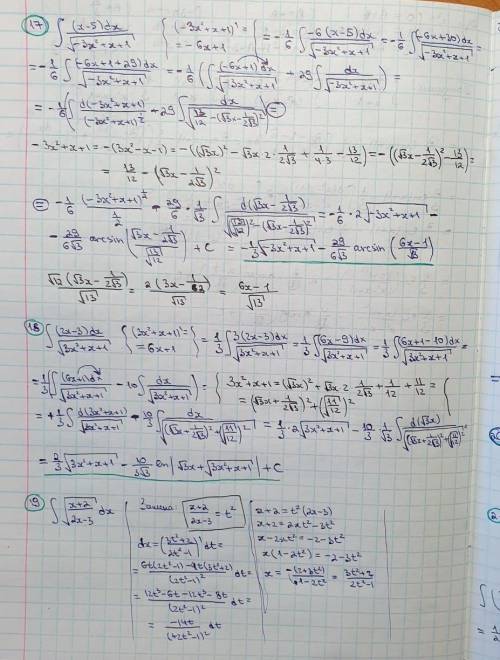 17) ∫ (x-5)dx / √(-3x²+x+1) { (-3x²+x+1)' = = -6x+1 } = -1/6 ∫ -6(x-5)dx / √(-3x²+x+1) = -1/6 ∫ (-6x+30)dx / √(-3x²+x+1) =
= -1/6 ∫ (-6x+1+29)dx / √(-3x²+x+1) = -1/6 ( ∫ (-6x+1)dx / √(-3x²+x+1) + 29 ∫ dx / √(-3x²+x+1) ) =
= -1/6 ∫ d(-3x²+x+1) / (-3x²+x+1)^(1/2) - 29 ∫ dx / √(13/12 - (√3x - 1/2√3)²) =
-3x²+x+1 = -(3x²-x-1) = -((√3x)² - √3x·2·1/2√3 + 1/4·3 - 13/12) = -((√3x - 1/2√3)² - 13/12) =
= 13/12 - (√3x - 1/2√3)²
= -1/6 (-3x²+x+1)^(1/2) / (1/2) - 29/6 · 1/√3 ∫ d(√3x - 1/2√3) / √((√13/√12)² - (√3x - 1/2√3)²) = -1/6 · 2√(-3x²+x+1) -
- 29/6√3 arcsin( (√3x - 1/2√3) / (√13/√12) ) + C = -1/3 √(-3x²+x+1) - 29/6√3 arcsin( (6x-1)/√13 )
√12(√3x - 1/2√3) / √13 = / √13 = (6x-1) / √13
18) ∫ (2x-3)dx / √(3x²+x+1) { (3x²+x+1)' = = 6x+1 } = 1/3 ∫ 3(2x-3)dx / √(3x²+x+1) = 1/3 ∫ (6x-9)dx / √(3x²+x+1) = 1/3 ∫ (6x+1-10)dx / √(3x²+x+1) =
= 1/3 ( ∫ (6x+1)dx / √(3x²+x+1) - 10 ∫ dx / √(3x²+x+1) ) = { 3x²+x+1 = (√3x)² + √3x·2·1/2√3 + 1/12 + 11/12 = = (√3x + 1/2√3)² + (√11/12)² } =
= 1/3 ∫ d(3x²+x+1) / √(3x²+x+1) - 10/3 ∫ dx / √((√3x + 1/2√3)² + (√11/12)²) = 1/3 · 2√(3x²+x+1) - 10/3 · 1/√3 ∫ d(√3x) / √((√3x + 1/2√3)² + (√11/12)²) =
= 2/3 √(3x²+x+1) - 10/3√3 ln | √3x + √(3x²+x+1) | + C
19) ∫ √((x+2)/(2x-3)) dx
Заміна: (x+2)/(2x-3) = t²
dx = ( (3t²+2)/(2t²-1) )' dt =
= (6t(2t²-1) - 4t(3t²+2)) / (2t²-1)² dt =
= (12t³-6t-12t³-8t) / (2t²-1)² dt =
= -14t / (2t²-1)² dt
x+2 = t²(2x-3)
x+2 = 2xt²-3t²
x-2xt² = -2-3t²
x(1-2t²) = -2-3t²
x = -(2+3t²) / (1-2t²) = (3t²+2) / (2t²-1)